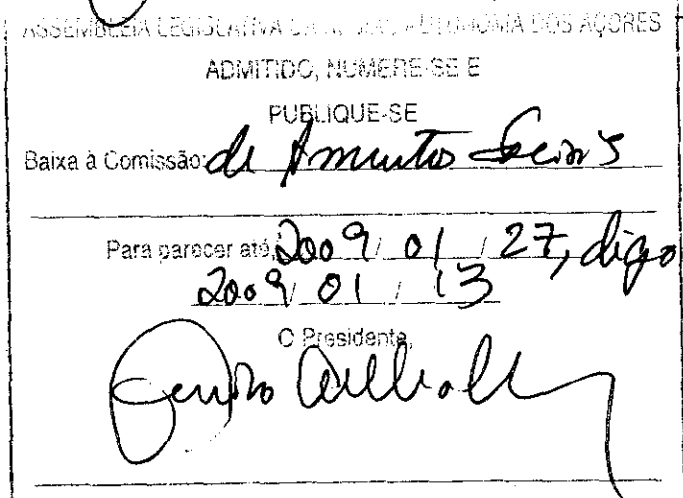 ASSEMBLEIA LEGISLATIVA DA REGIÃO AUTÓNOMA DOS AÇORES
ADMITIDO, NUMERE-SE E
PUBLIQUE-SE
Baixa à Comissão: de Assuntos Sociais
Para parecer até, 2009 / 01 / 27, digo
2009 / 01 / 13
O Presidente,